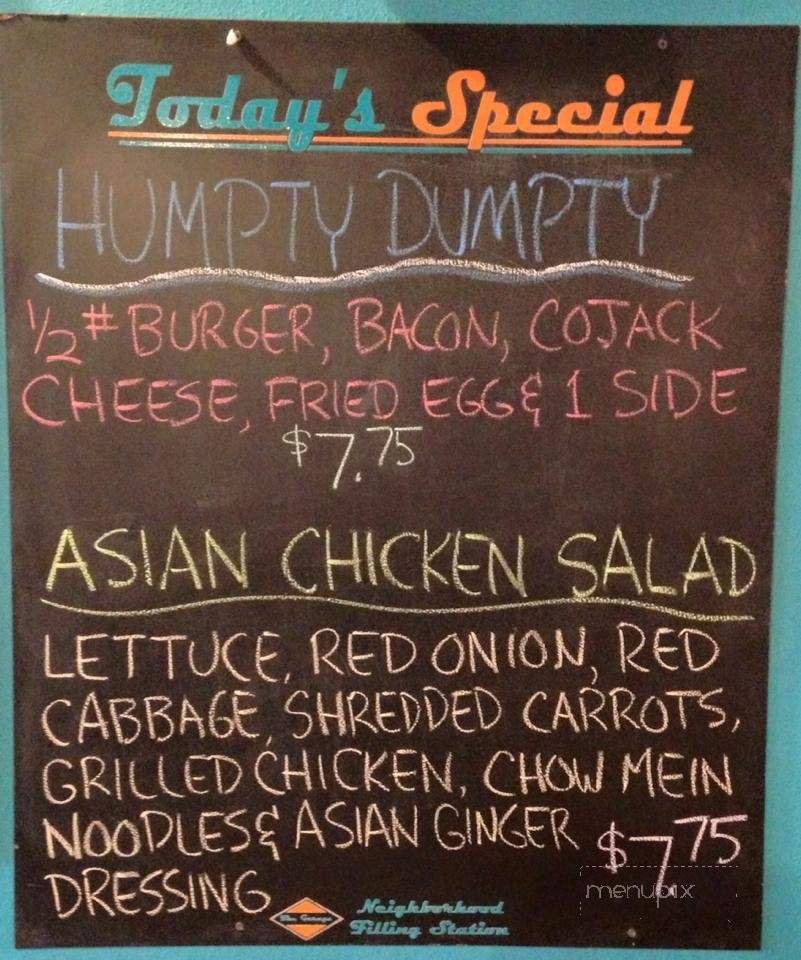 Today's Special
HUMPTY DUMPTY
1/2 # BURGER, BACON, COJACK
CHEESE, FRIED EGG & 1 SIDE
$7.75
ASIAN CHICKEN SALAD
LETTUCE, RED ONION, RED
CABBAGE, SHREDDED CARROTS,
GRILLED CHICKEN, CHOW MEIN
NOODLES & ASIAN GINGER $7.75
DRESSING
The Garage
Neighborhood
Filling Station
menupix